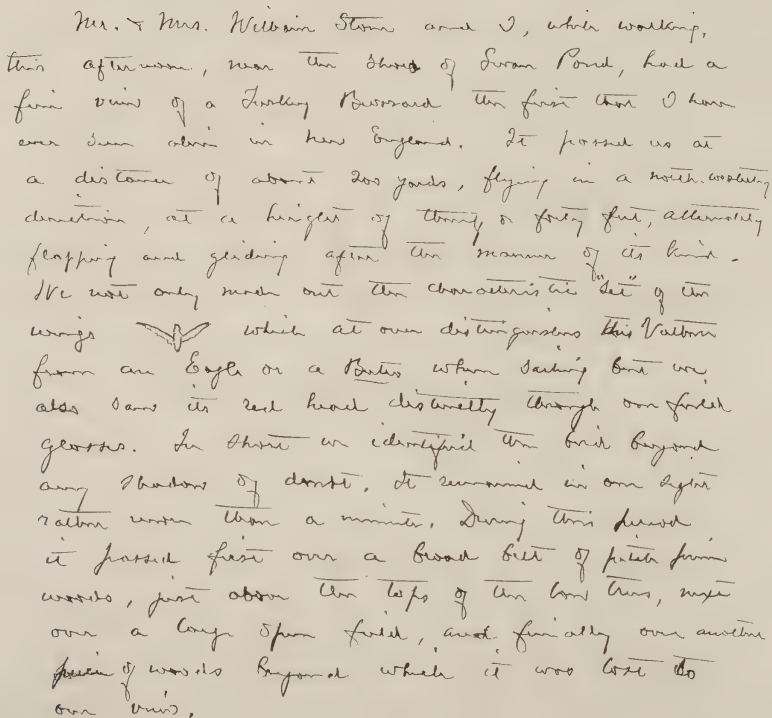 Mr. & Mrs. William Stone and I, while walking,
this afternoon, near the shore of Swan Pond, had a
fine view of a Turkey Buzzard the first that I have
ever seen alive in New England. It passed us at
a distance of about 200 yards, flying in a north-westerly
direction, at a height of thirty or forty feet, alternately
flapping and gliding after the manner of its kind.
We not only made out the characteristic "set" of the
wings which at once distinguishes this Vulture
from an Eagle or a Buteo when sailing but we
also saw its red head distinctly through our field
glasses. In short we identified the bird beyond
any shadow of doubt. It remained in our sight
rather more than a minute. During this period
it passed first over a broad belt of pitch pine
woods, just above the tops of the low trees, next
over a large open field, and finally over another
piece of woods beyond which it was lost to
our view.